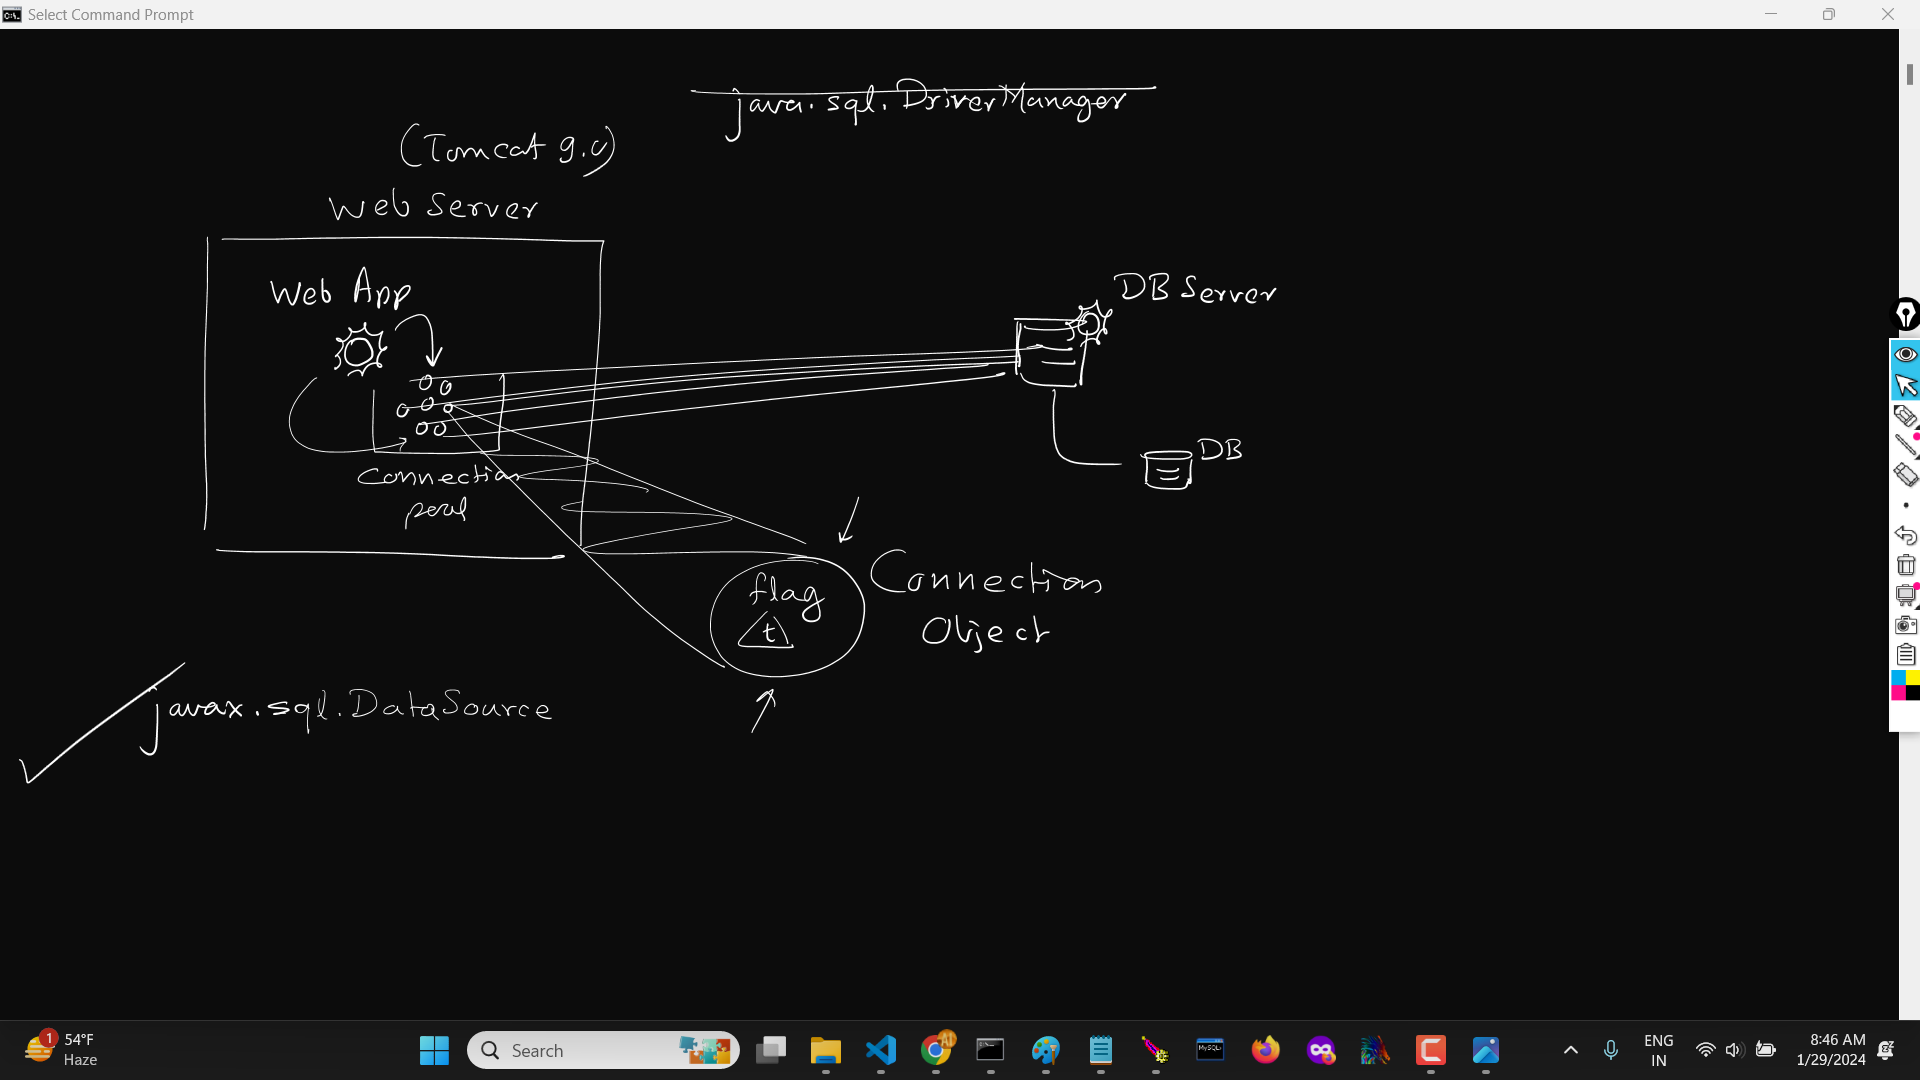 Select Command Prompt
java.sql.DriverManager
(Tomcat 9.0)
Web Server
Web App
DB Server
DB
Connection
pool
flag
t
Connection
Object
javax.sql.DataSource
1
54°F
Haze
Search
MySQL
ENG
IN
8:46 AM
1/29/2024